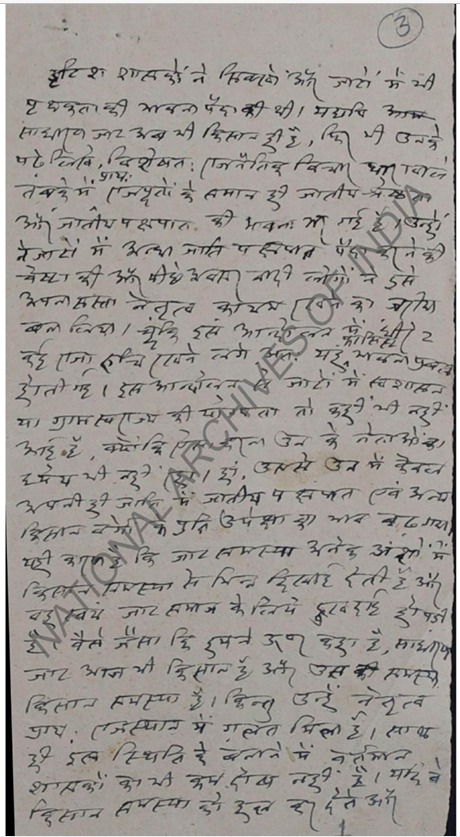 3
ब्रिटिश शासकों ने सिक्खों और जाटों में भी
पृथकता की भावना पैदा की थी। यद्यपि
साधारण जाट अब भी किसान ही है, फिर भी उनके
पढे लिखे, विशेषतः राजनैतिक विचार धारा वाले
तबके में प्रायः राजपूतों के समान ही जातीय श्रेष्ठता
और जातीय पक्षपात की भावना भर गई है। उन्होंने
जाटों में अन्धा जाति पक्षपात पैदा करने की
चेष्टा की और पीछे अवसर वादी लोगों ने इसे
अपना सस्ता नेतृत्व कायम रखने का जरिया
बना लिया। चूंकि इस आन्दोलन में धीरे २
कई राजा रुचि लेने लगे अतः यह भावना प्रबल
होती गई। इस आन्दोलन से जाटों में स्वशासन
या ग्राम स्वराज्य की योग्यता तो कहीं भी नहीं
आई है, क्योंकि ऐसा करना उन के नेताओं का
ध्येय भी नहीं था। हां, उससे उन में केवल
अपनी ही जाति में जातीय पक्षपात एवं अन्य
किसान वर्गों के प्रति उपेक्षा का भाव बढ गया।
यही कारण है कि जाट समस्या अनेक अंशों में
किसान समस्या से भिन्न दिखाई देती है और
वह स्वयं जाट समाज के लिये दुखदाई हो पडी
है। वैसे जैसा कि हमने ऊपर कहा है, साधारण
जाट आज भी किसान है और उस की समस्या
किसान समस्या है। किन्तु उन्हें नेतृत्व
प्रायः राजस्थान में गलत मिला है। साथ
ही इस स्थिति के बनाने में वर्तमान
शासकों का भी कम दोष नहीं है। यदि वे
किसान समस्या को हल कर देते और
NATIONAL ARCHIVES OF INDIA